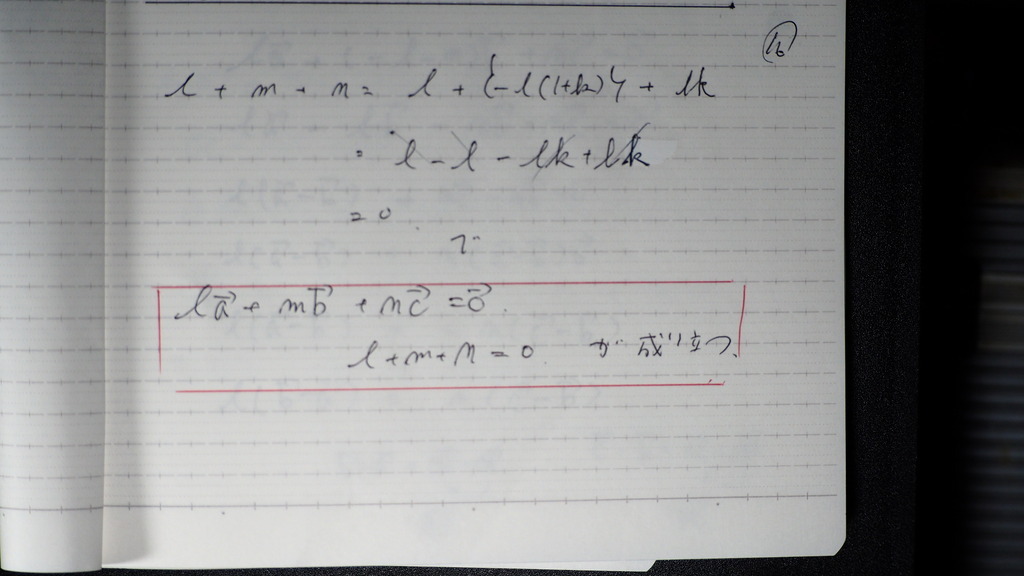 16
l + m + n = l + {-l(1+k)} + lk
= l - l - lk + lk
= 0.
で
l\vec{a} + m\vec{b} + n\vec{c} = \vec{0}.
l + m + n = 0. が成り立つ.